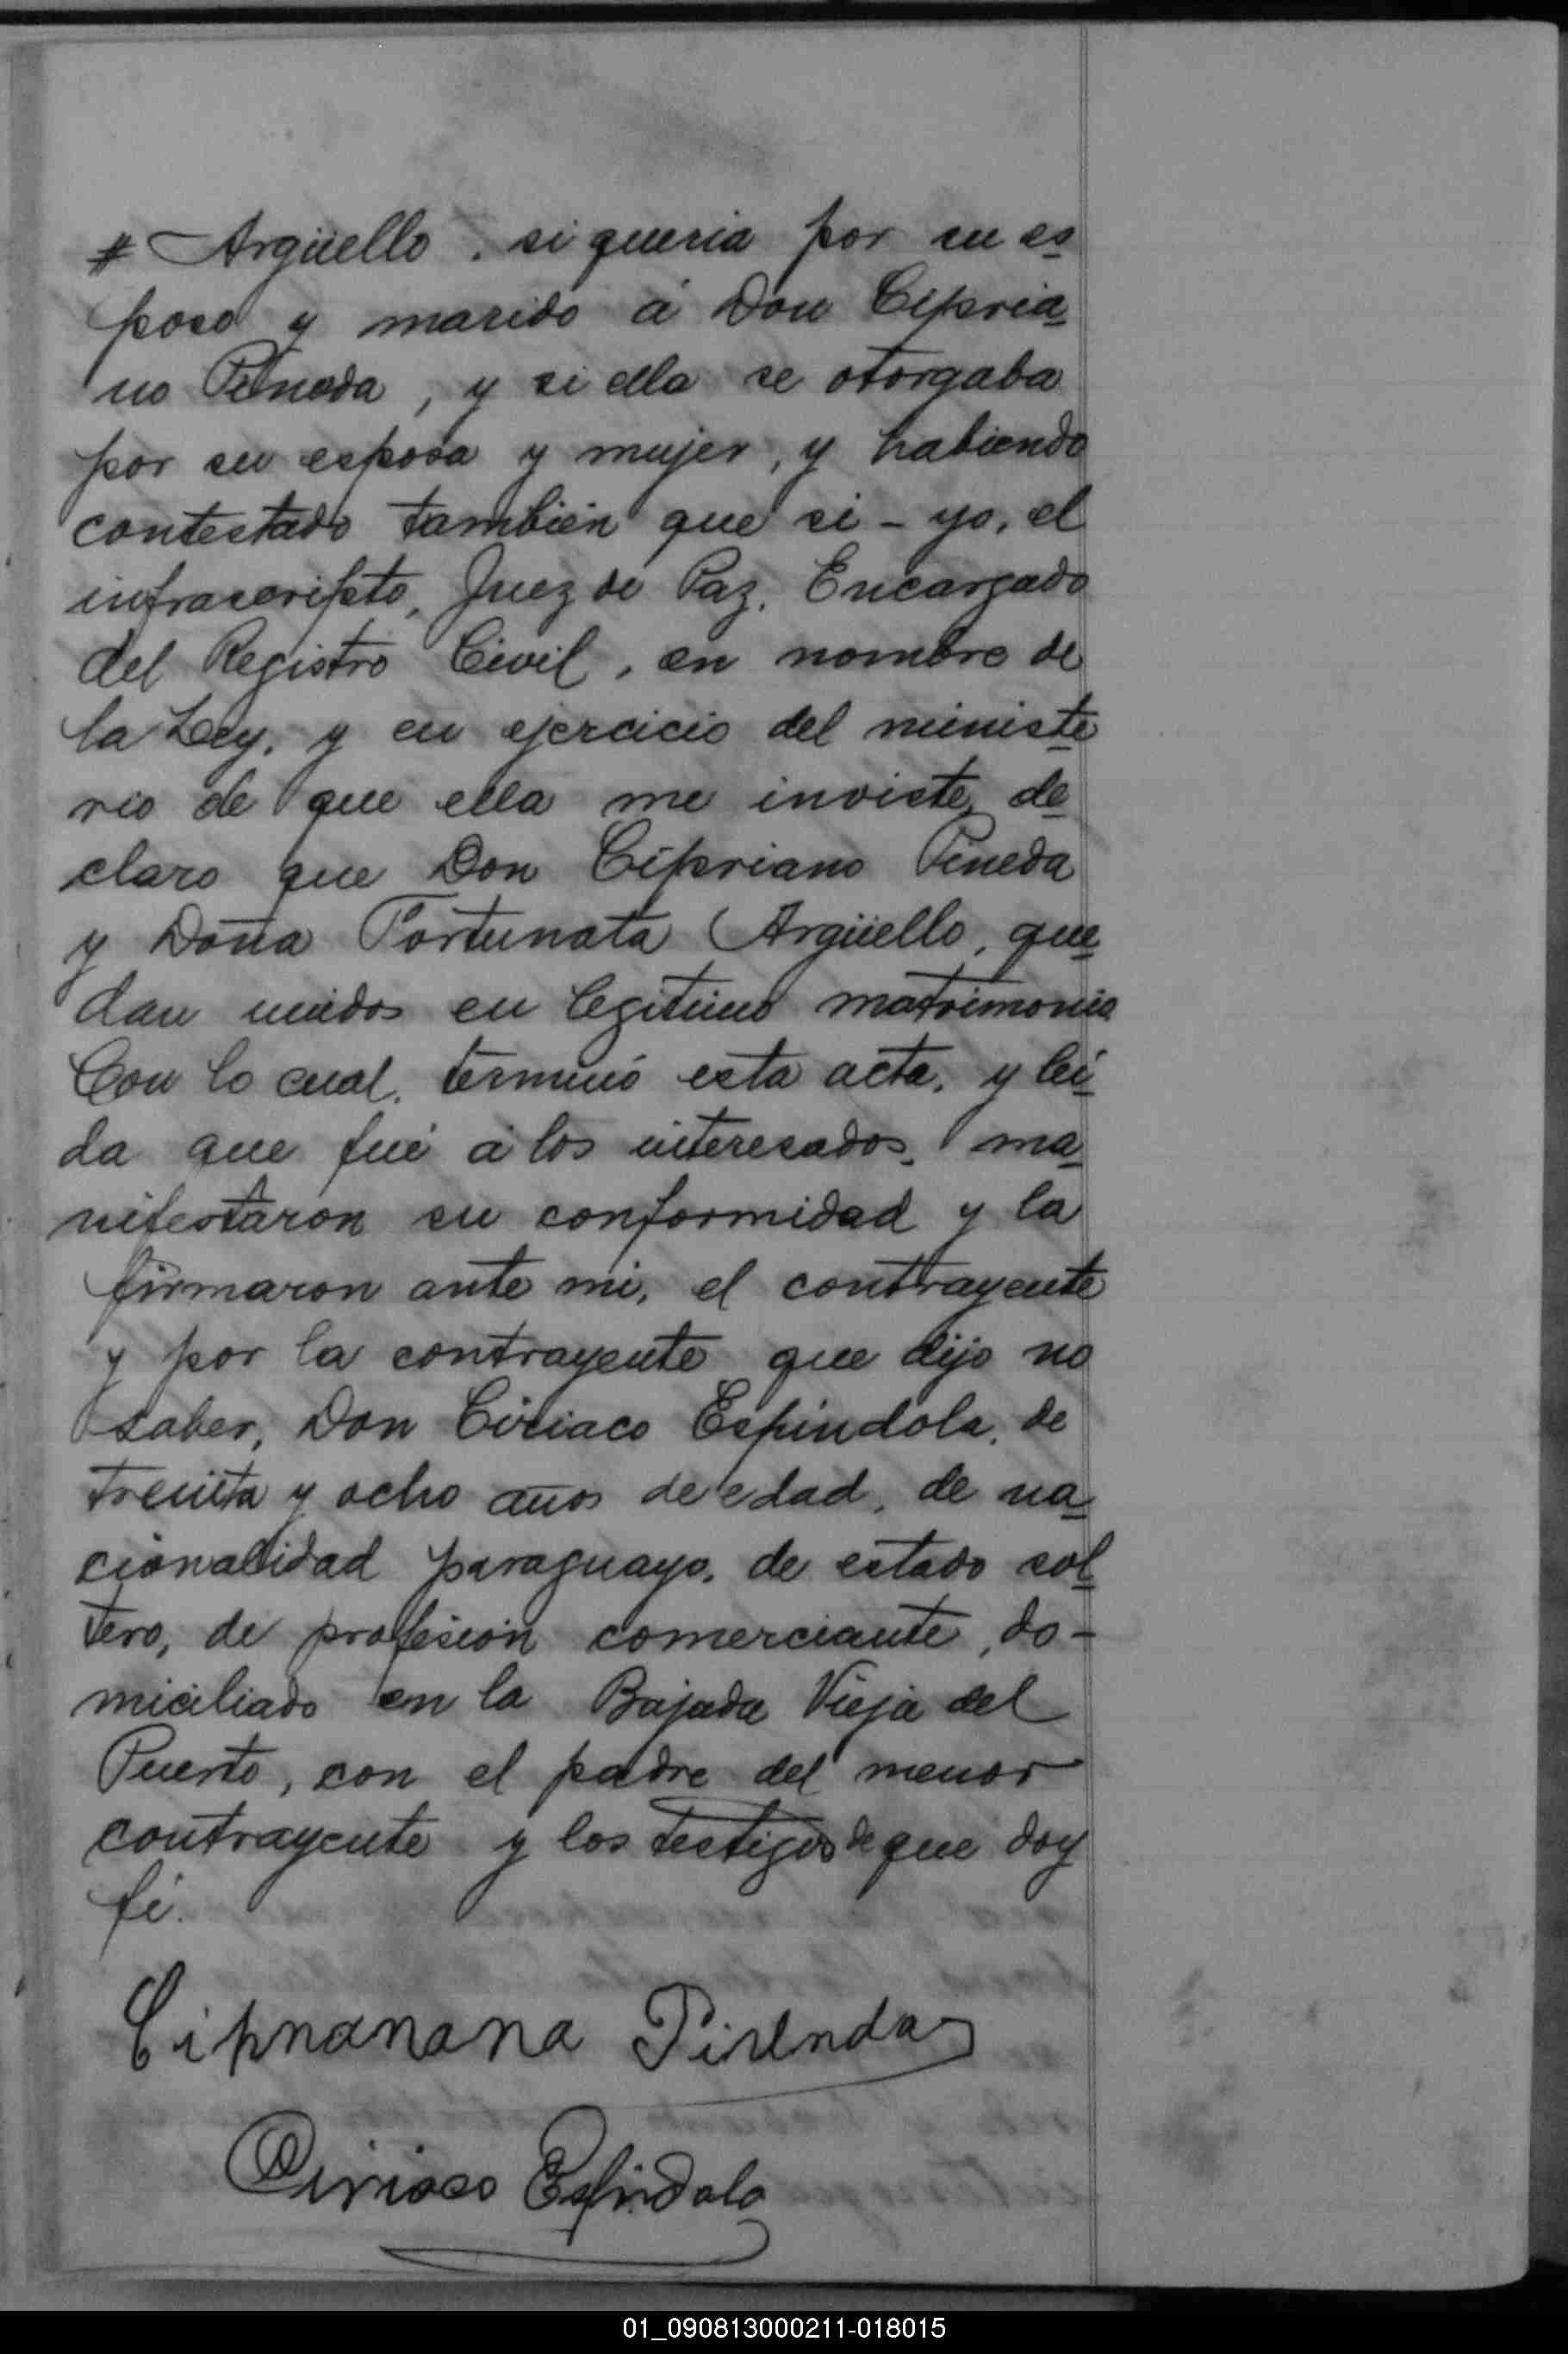 # Argüello, si queria por su es
poso y marido á Don Cipria
no Pineda, y si ella se otorgaba
por su esposa y mujer, y habiendo
contestado también que si - yo, el
infrascripto, Juez de Paz, Encargado
del Registro Civil, en nombre de
la Ley, y en ejercicio del ministe
rio de que ella me inviste, de
claro que Don Cipriano Pineda
y Doña Fortunata Argüello, que
dan unidos en legitimo matrimonio
Con lo cual, terminó esta acta, y lei
da que fué á los interesados, ma
nifestaron su conformidad y la
firmaron ante mi, el contrayente
y por la contrayente que dijo no
saber, Don Ciriaco Espindola, de
treinta y ocho años de edad, de na
cionalidad paraguayo, de estado sol
tero, de profesión comerciante, do-
miciliado en la Bajada Vieja del
Puerto, con el padre del menor
contrayente y los testigos de que doy
fé.
Ciriaco Espindola
01_090813000211-018015